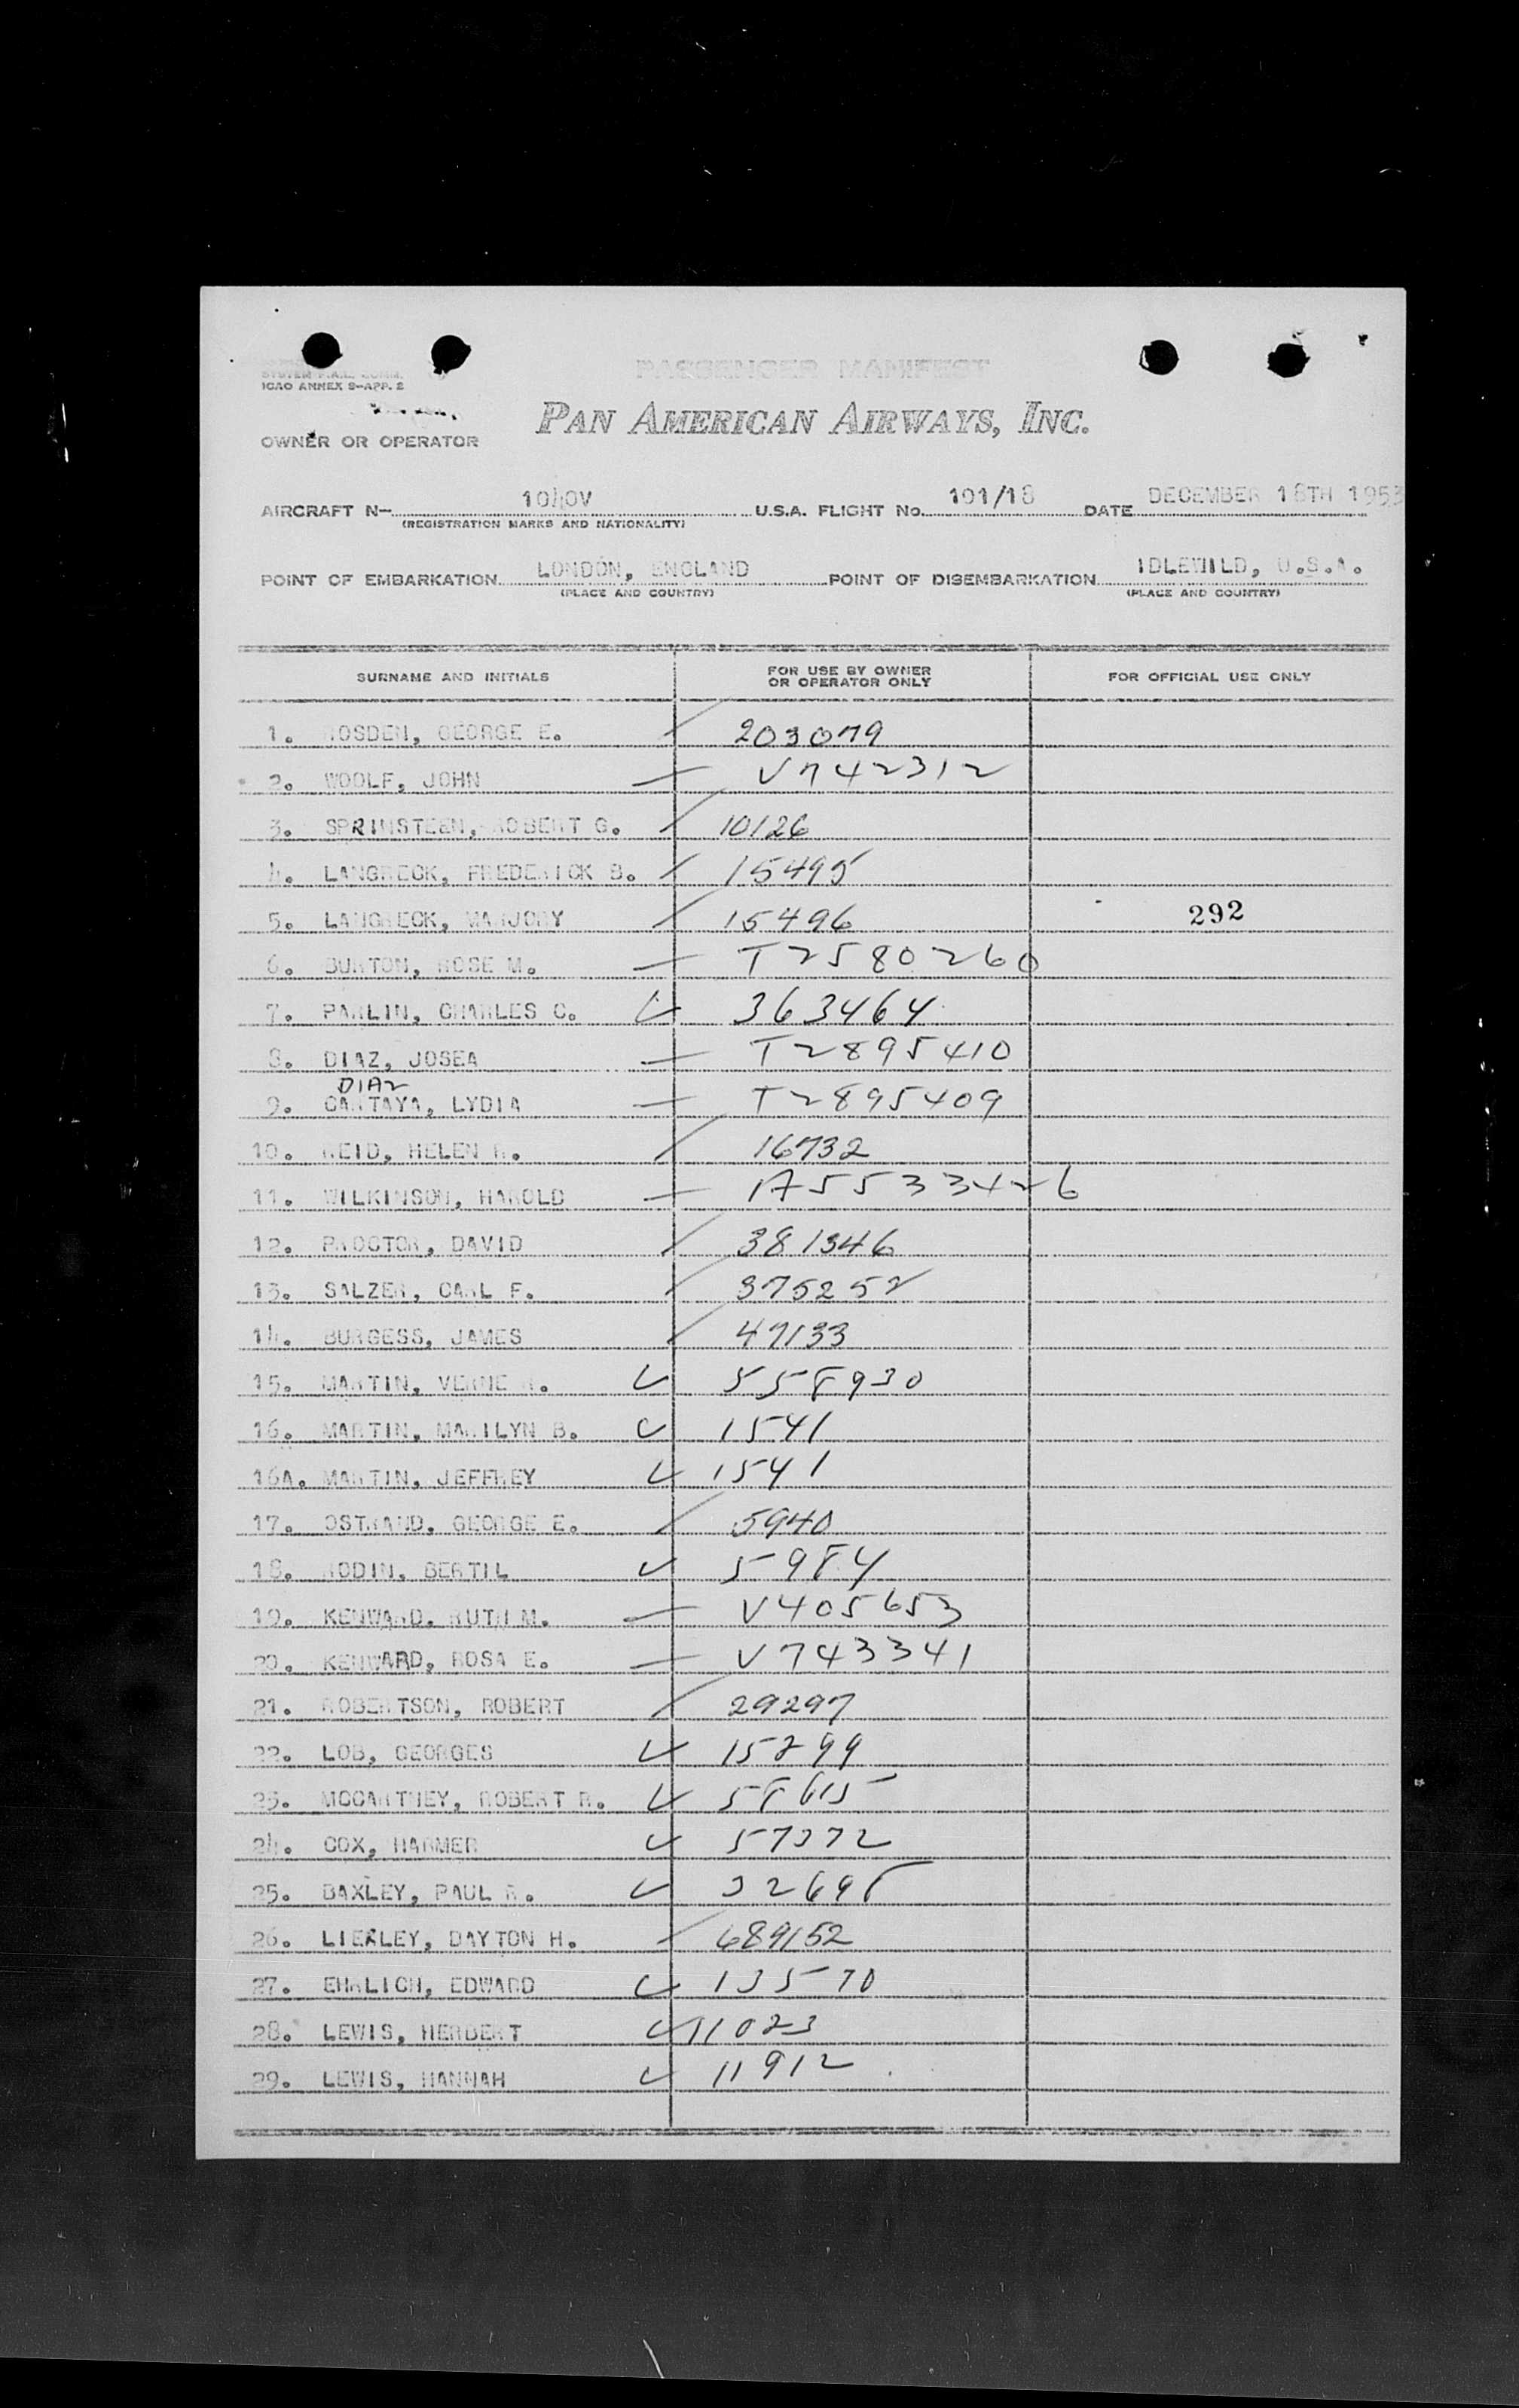 PASSENGER MANIFEST
ICAO ANNEX 9-APP. 2
PAN AMERICAN AIRWAYS, INC.
OWNER OR OPERATOR
AIRCRAFT N- 1040V U.S.A. FLIGHT No. 101/18 DATE DECEMBER 18TH 1953
(REGISTRATION MARKS AND NATIONALITY)
POINT OF EMBARKATION LONDON, ENGLAND POINT OF DISEMBARKATION IDLEWILD, U.S.A.
(PLACE AND COUNTRY) (PLACE AND COUNTRY)
SURNAME AND INITIALS FOR USE BY OWNER OR OPERATOR ONLY FOR OFFICIAL USE ONLY
1. HOSDEN, GEORGE E. 203079
2. WOOLF, JOHN V742312
3. SPRINSTEEN, ROBERT G. 10126
4. LANGRECK, FREDERICK B. 15495
5. LANGRECK, MARJORY 15496 292
6. BURTON, ROSE M. T2580260
7. PARLIN, CHARLES C. 363464
8. DIAZ, JOSEA T2895410
DIAZ
9. CARTAYA, LYDIA T2895409
10. REID, HELEN R. 16732
11. WILKINSON, HAROLD 1A5533426
12. PROCTOR, DAVID 381346
13. SALZER, CARL F. 375252
14. BURGESS, JAMES 47133
15. MARTIN, VERNE R. 558930
16. MARTIN, MARILYN B. 1541
16A. MARTIN, JEFFREY 1541
17. OSTRAND, GEORGE E. 5940
18. RODIN, BERTIL 5984
19. KENWARD, RUTH M. V405653
20. KENWARD, ROSA E. V743341
21. ROBERTSON, ROBERT 29297
22. LOB, GEORGES 15299
23. MCCARTNEY, ROBERT R. 58615
24. COX, HARMER 57372
25. BAXLEY, PAUL R. 32698
26. LIERLEY, DAYTON H. 689152
27. EHRLICH, EDWARD 13570
28. LEWIS, HERBERT 11023
29. LEWIS, HANNAH 11912